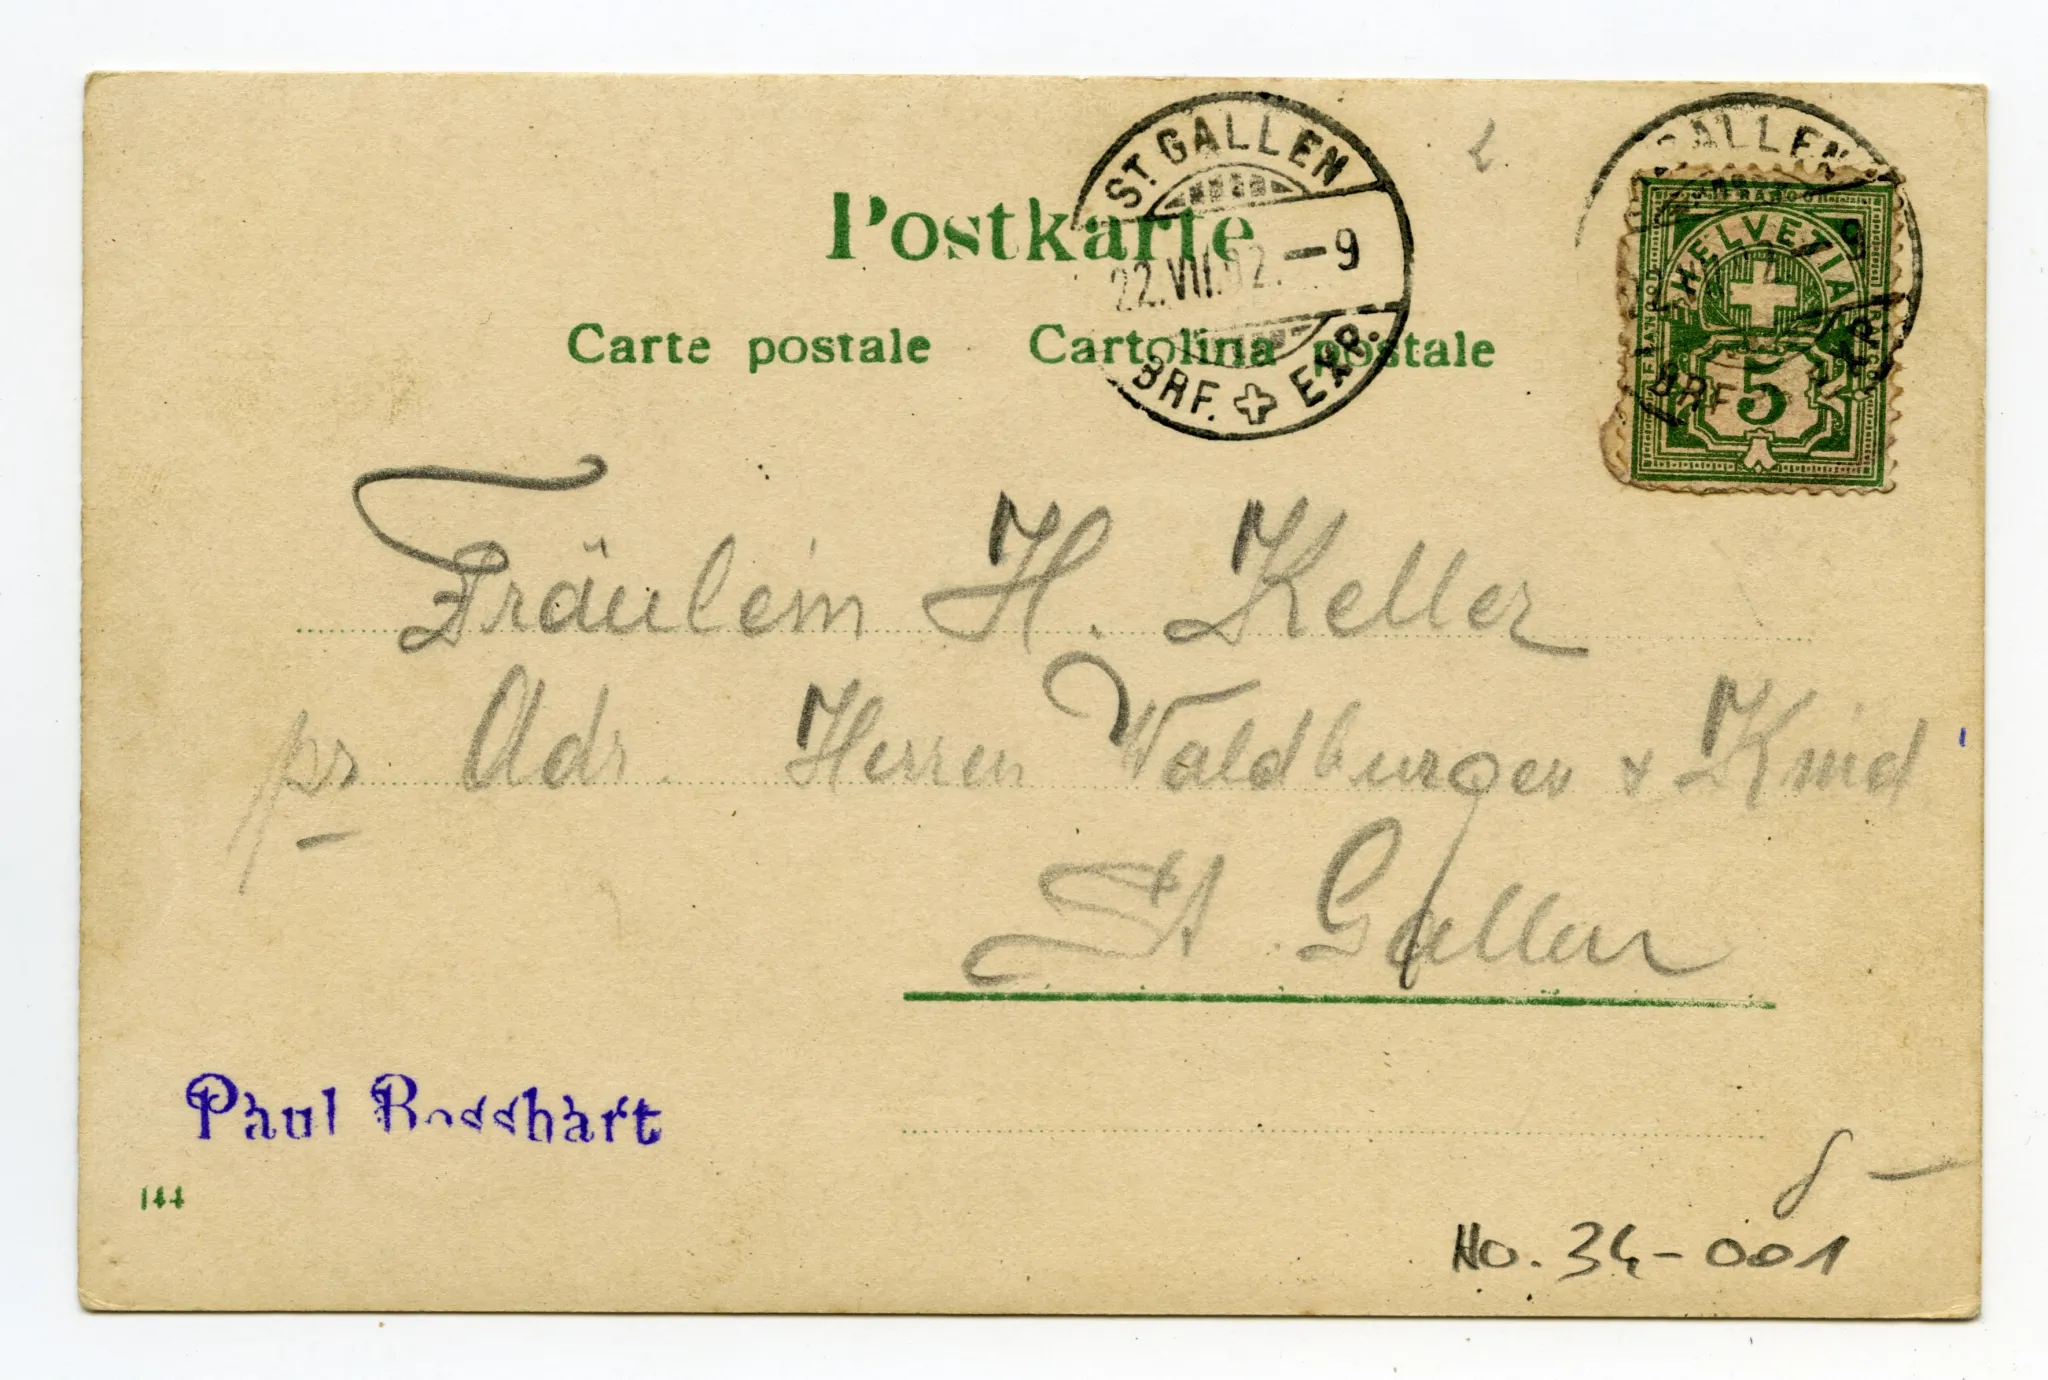 Postkarte
Carte postale Cartolina postale
ST. GALLEN
22.VII.02.–9
BRF. EXP.
GALLEN
9
BRF. EXP.
FRANCO
HELVETIA
FRANCO
5
Fräulein H. Keller
pr Adr. Herren Waldburger & Kind
St. Gallen
Paul Bosshart
144
No. 34-001